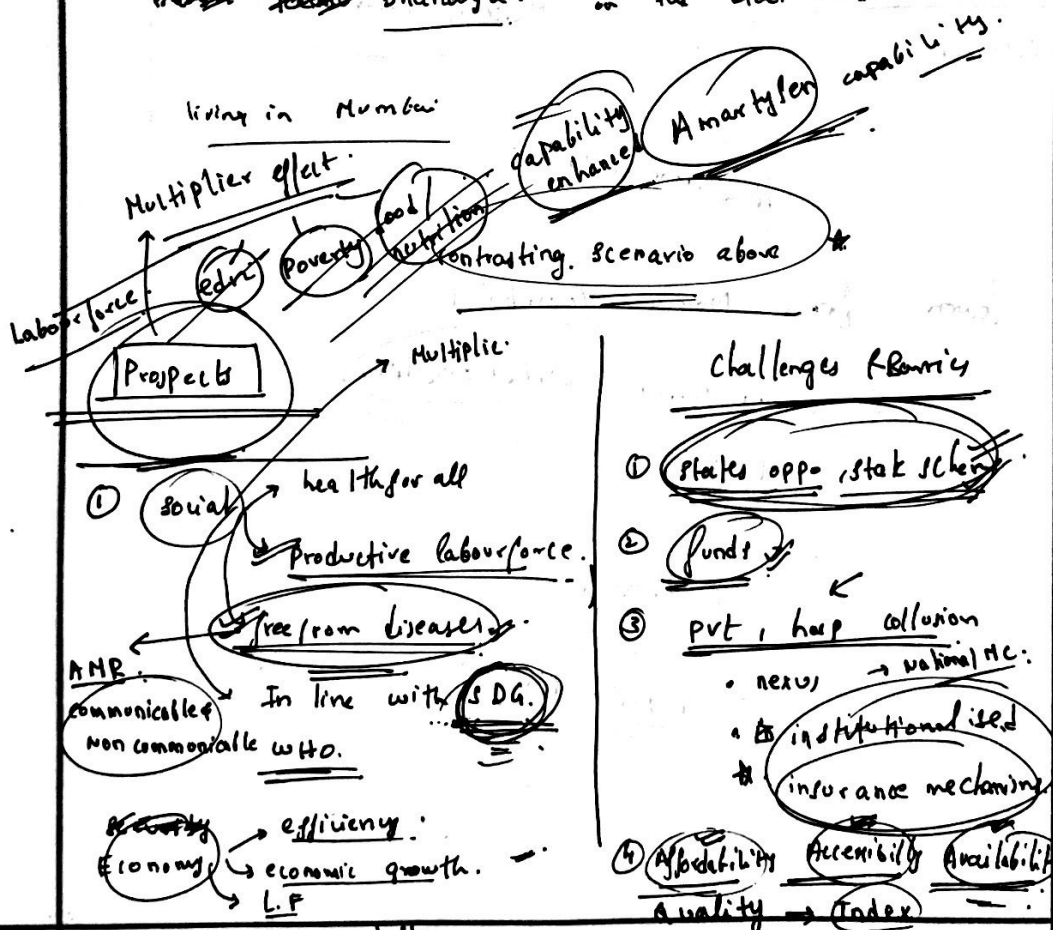 living in Mumbai
Multiplier effect.
capability enhances
Amartya Sen capability.
Labour force.
edn
poverty
food/
nutrition
contrasting. scenario above
Prospects
Multiplic.
① social
health for all
productive labour force.
free from diseases
AMR.
communicable &
Non communicable
In line with SDG.
WHO.
Economy
efficiency.
economic growth.
L.F
Challenges & Barries
① states oppo, stak schem
② funds
③ pvt, hosp collusion
• nexus → National MC.
• institutionalised
insurance mechanism
④ Affordability Accessibily Availabilit
Quality → Index